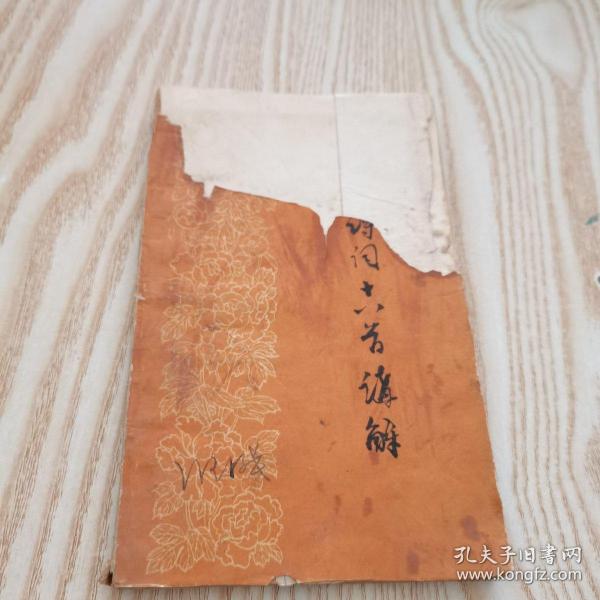 诗词十六首讲解
孔夫子旧书网
www.kongfz.com